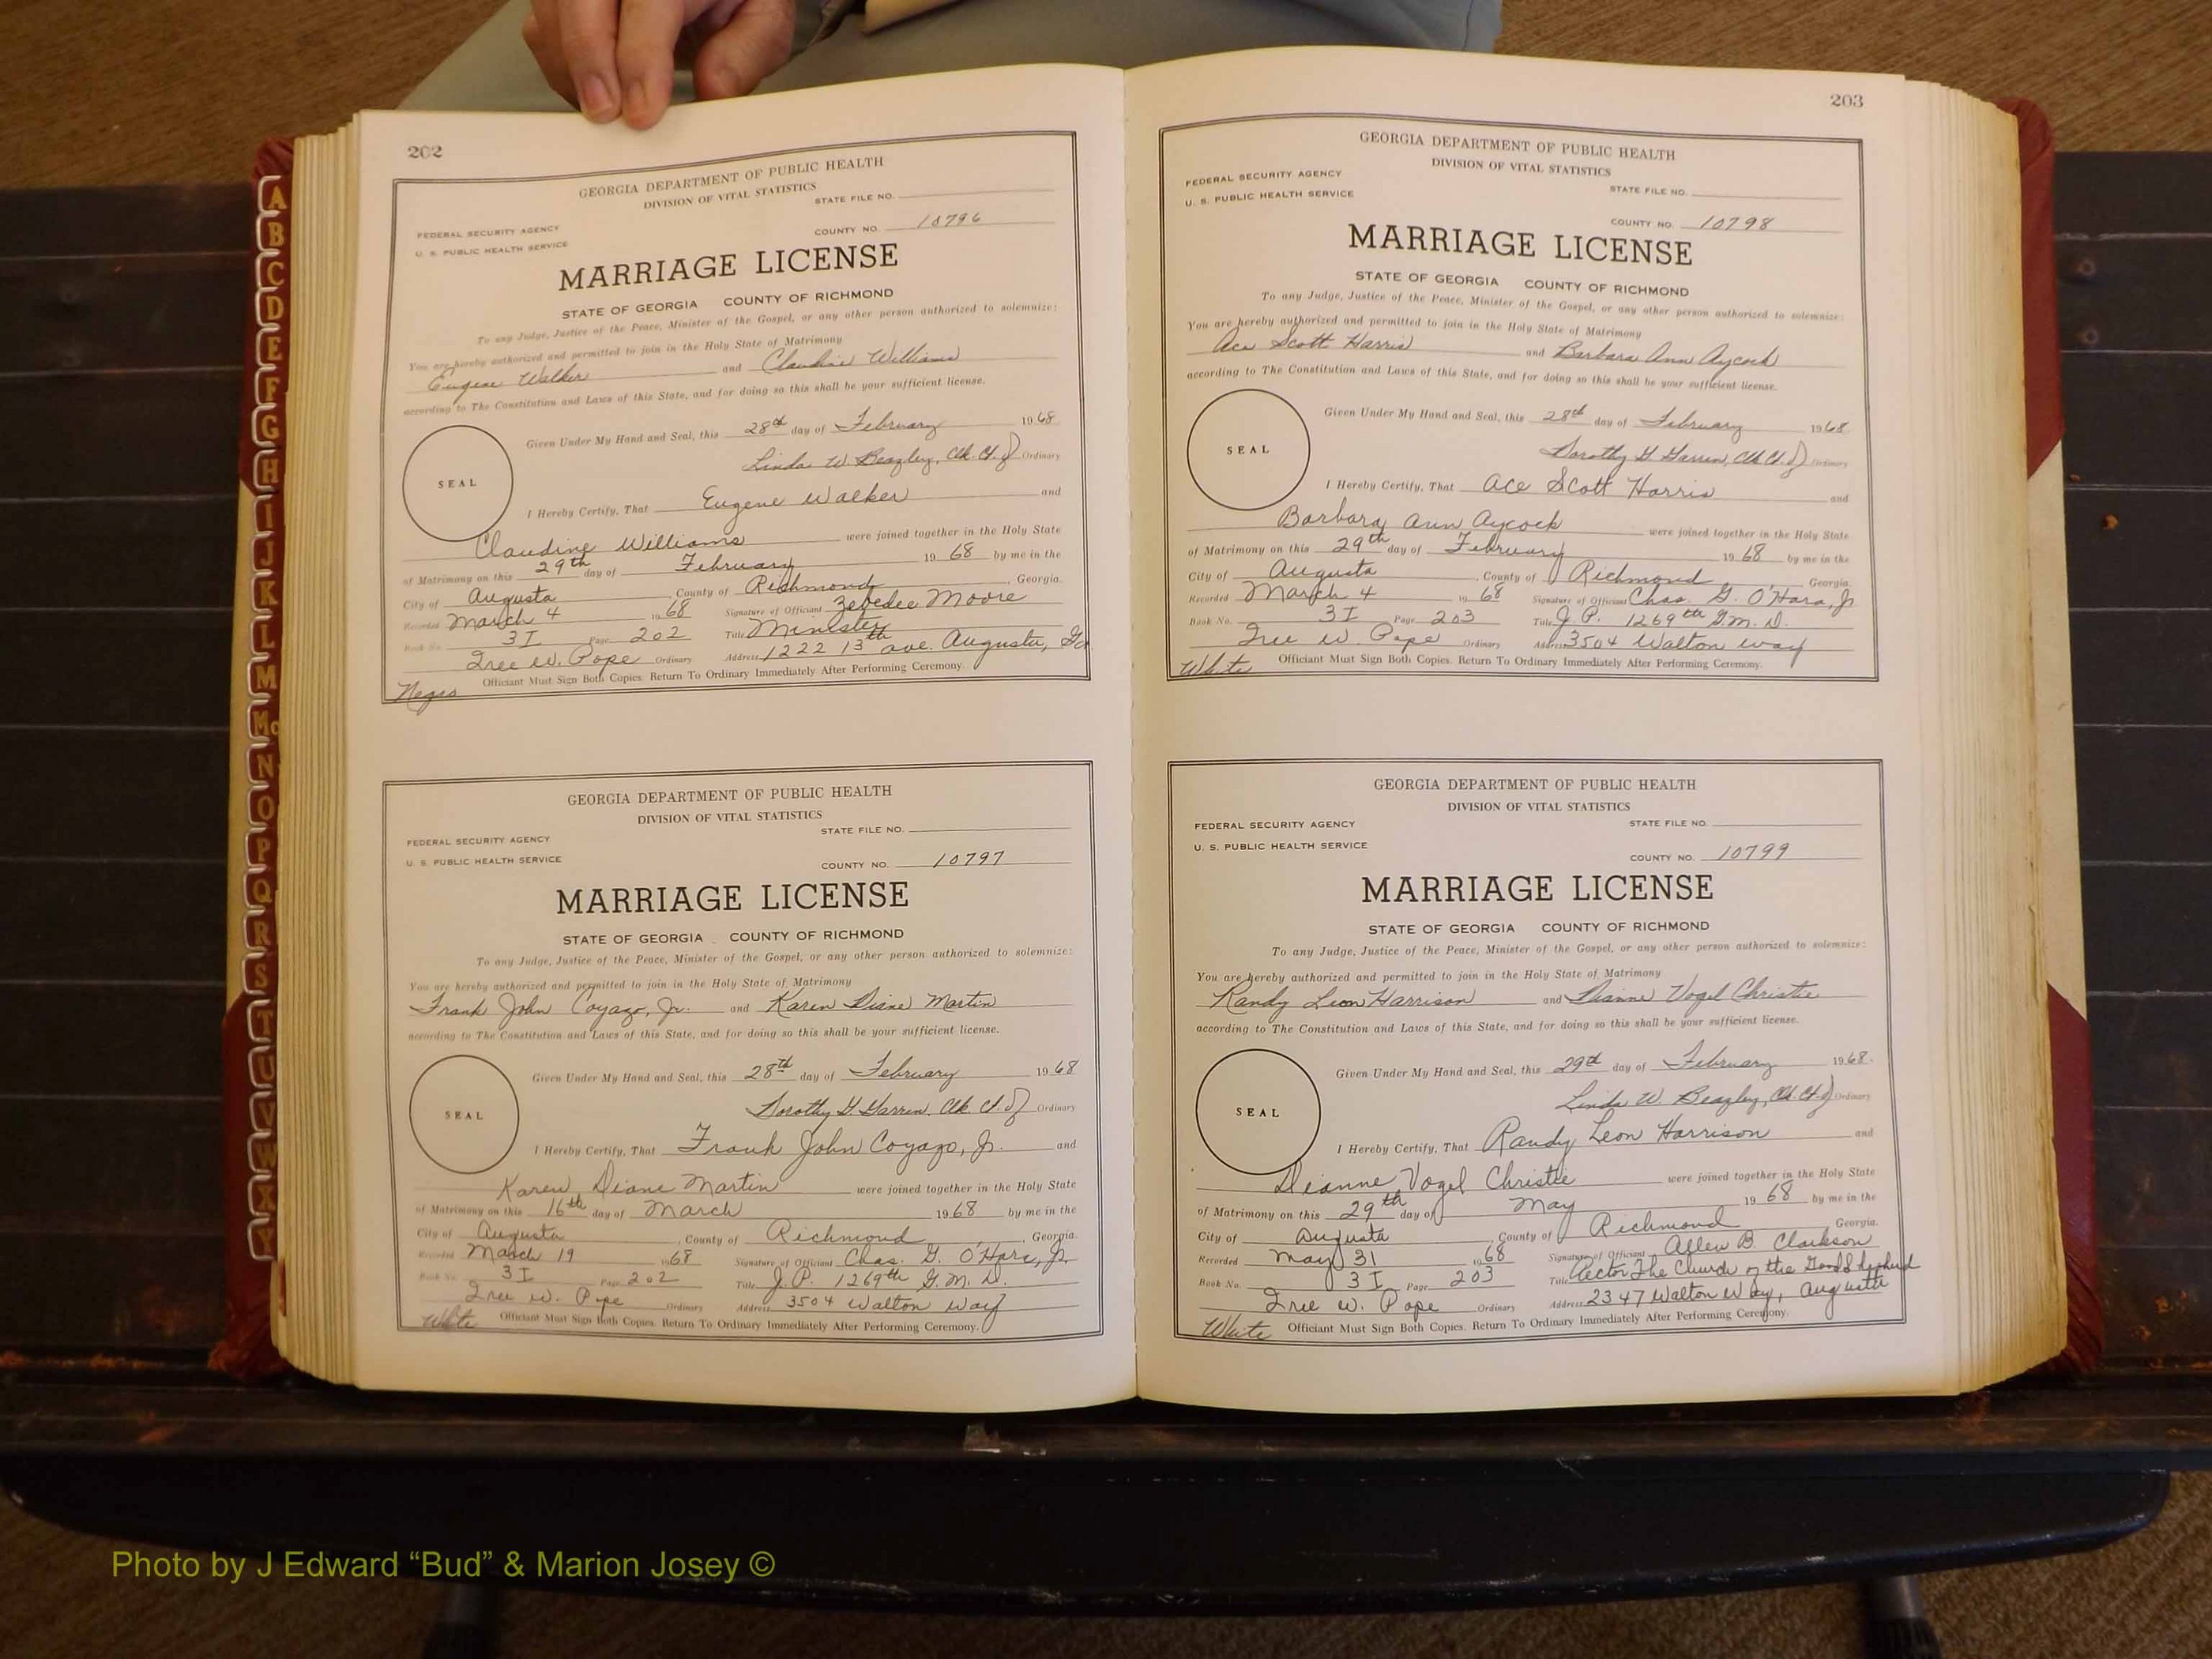 202
GEORGIA DEPARTMENT OF PUBLIC HEALTH
DIVISION OF VITAL STATISTICS
STATE FILE NO.
FEDERAL SECURITY AGENCY
U. S. PUBLIC HEALTH SERVICE
COUNTY NO. 10796
MARRIAGE LICENSE
STATE OF GEORGIA COUNTY OF RICHMOND
To any Judge, Justice of the Peace, Minister of the Gospel, or any other person authorized to solemnize:
You are hereby authorized and permitted to join in the Holy State of Matrimony
Eugene Walker and Claudine Williams
according to The Constitution and Laws of this State, and for doing so this shall be your sufficient license.
Given Under My Hand and Seal, this 28th day of February 1968
Linda W. Beazley, Clk. Ct. of Ordinary
SEAL
I Hereby Certify, That Eugene Walker and
Claudine Williams were joined together in the Holy State
of Matrimony on this 29th day of February 1968 by me in the
City of Augusta, County of Richmond, Georgia.
Recorded March 4 1968 Signature of Officiant Zebedee Moore
Book No. 3 I Page 202 Title Minister
Iree W. Pope Ordinary Address 1222 13th ave. Augusta, Ga
Officiant Must Sign Both Copies. Return To Ordinary Immediately After Performing Ceremony.
Negro
GEORGIA DEPARTMENT OF PUBLIC HEALTH
DIVISION OF VITAL STATISTICS
STATE FILE NO.
FEDERAL SECURITY AGENCY
U. S. PUBLIC HEALTH SERVICE
COUNTY NO. 10797
MARRIAGE LICENSE
STATE OF GEORGIA COUNTY OF RICHMOND
To any Judge, Justice of the Peace, Minister of the Gospel, or any other person authorized to solemnize:
You are hereby authorized and permitted to join in the Holy State of Matrimony
Frank John Coyazo, Jr. and Karen Diane Martin
according to The Constitution and Laws of this State, and for doing so this shall be your sufficient license.
Given Under My Hand and Seal, this 28th day of February 1968
Dorothy G. Garren, Clk. Ct. of Ordinary
SEAL
I Hereby Certify, That Frank John Coyazo, Jr. and
Karen Diane Martin were joined together in the Holy State
of Matrimony on this 16th day of March 1968 by me in the
City of Augusta, County of Richmond, Georgia.
Recorded March 19 1968 Signature of Officiant Chas. G. O'Hara, Jr.
Book No. 3 I Page 202 Title J. P. 1269th G. M. D.
Iree W. Pope Ordinary Address 3504 Walton Way
White Officiant Must Sign Both Copies. Return To Ordinary Immediately After Performing Ceremony.
203
GEORGIA DEPARTMENT OF PUBLIC HEALTH
DIVISION OF VITAL STATISTICS
FEDERAL SECURITY AGENCY
U. S. PUBLIC HEALTH SERVICE
STATE FILE NO.
COUNTY NO. 10798
MARRIAGE LICENSE
STATE OF GEORGIA COUNTY OF RICHMOND
To any Judge, Justice of the Peace, Minister of the Gospel, or any other person authorized to solemnize:
You are hereby authorized and permitted to join in the Holy State of Matrimony
Ace Scott Harris and Barbara Ann Aycock
according to The Constitution and Laws of this State, and for doing so this shall be your sufficient license.
Given Under My Hand and Seal, this 28th day of February 1968.
Dorothy G. Garren, Clk Ct. of Ordinary
SEAL
I Hereby Certify, That Ace Scott Harris and
Barbara Ann Aycock were joined together in the Holy State
of Matrimony on this 29th day of February 1968 by me in the
City of Augusta, County of Richmond, Georgia.
Recorded March 4 1968 Signature of Officiant Chas. G. O'Hara, Jr
Book No. 3 I Page 203 Title J. P. 1269th G. M. D.
Iree W. Pope Ordinary Address 3504 Walton Way
White Officiant Must Sign Both Copies. Return To Ordinary Immediately After Performing Ceremony.
GEORGIA DEPARTMENT OF PUBLIC HEALTH
DIVISION OF VITAL STATISTICS
FEDERAL SECURITY AGENCY
U. S. PUBLIC HEALTH SERVICE
STATE FILE NO.
COUNTY NO. 10799
MARRIAGE LICENSE
STATE OF GEORGIA COUNTY OF RICHMOND
To any Judge, Justice of the Peace, Minister of the Gospel, or any other person authorized to solemnize:
You are hereby authorized and permitted to join in the Holy State of Matrimony
Randy Leon Harrison and Dianne Vogel Christie
according to The Constitution and Laws of this State, and for doing so this shall be your sufficient license.
Given Under My Hand and Seal, this 29th day of February 1968.
Linda W. Beazley, Clk. Ct. of Ordinary
SEAL
I Hereby Certify, That Randy Leon Harrison and
Dianne Vogel Christie were joined together in the Holy State
of Matrimony on this 29th day of May 1968 by me in the
City of Augusta, County of Richmond, Georgia.
Recorded May 31 1968 Signature of Officiant Allen B. Clarkson
Book No. 3 I Page 203 Title Rector The Church of the Good Shepherd
Iree W. Pope Ordinary Address 2347 Walton Way, Augusta
White Officiant Must Sign Both Copies. Return To Ordinary Immediately After Performing Ceremony.
A
B
C
D
E
F
G
H
I
J
K
L
M
Mc
N
O
P
Q
R
S
T
U
V
W
X
Y
Photo by J Edward “Bud” & Marion Josey ©